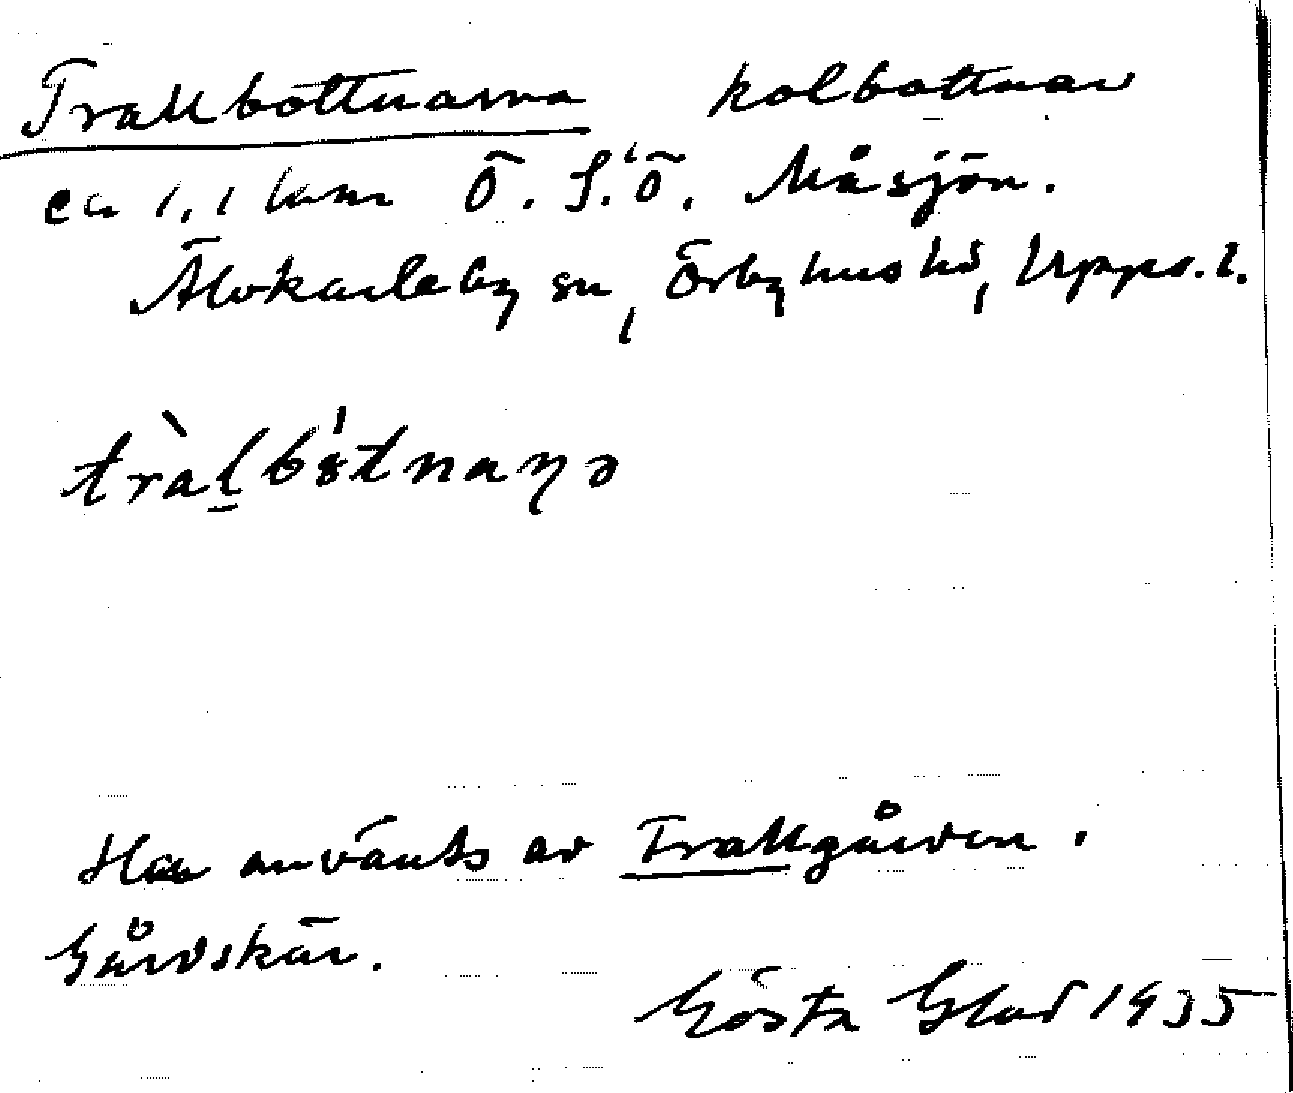 Trallbottnarna kolbottnar
ca 1,1 km Ö. S. Ö. Måsjön.
Älvkarleby sn, Örbyhus hd, Upps. l.
tràl̠bòtnaɳə
Har använts av Trallgården.
Gårdskär.
Gösta Glad 1935